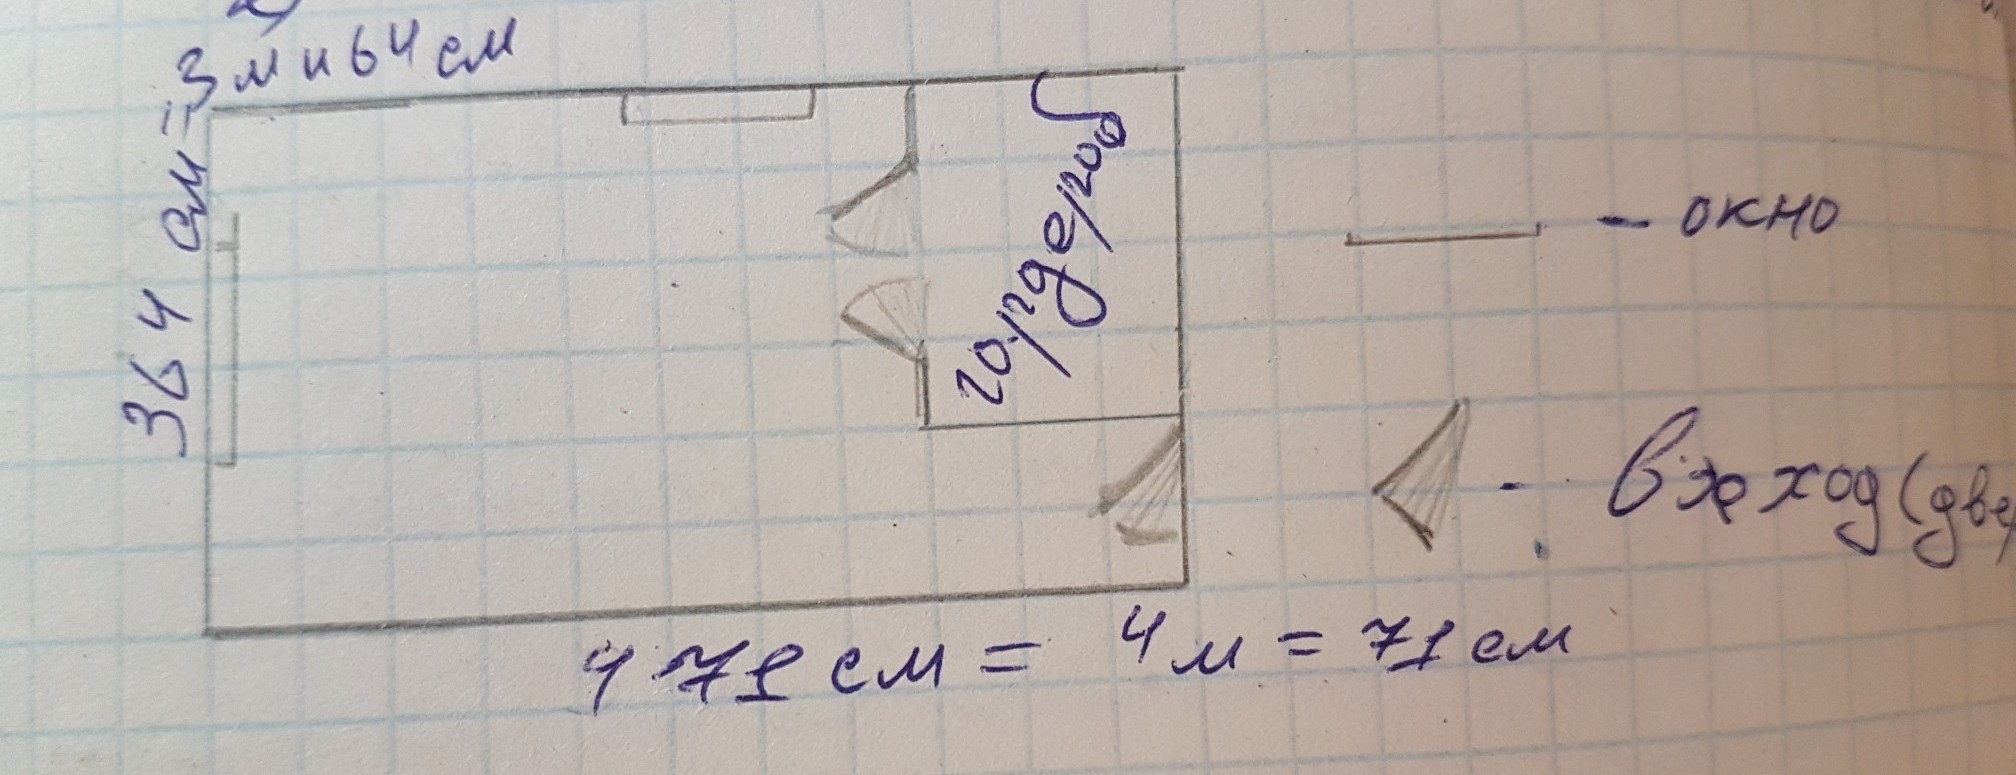 364 см = 3 м и 64 см
гордероб
- окно
- вход (две
471 см = 4 м = 71 см